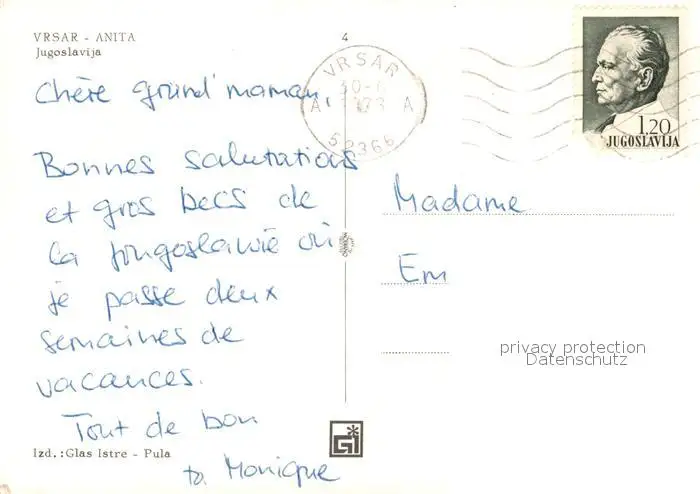 VRSAR - ANITA
Jugoslavija
4
VRSAR
52366
A A
1.20
JUGOSLAVIJA
Chère grand'maman,
Bonnes salutations
et gros becs de
la Jougoslawie où
je passe deux
semaines de
vacances.
Tout de bon
ta Monique
Madame
Em
privacy protection
Datenschutz
Izd.:Glas Istre - Pula